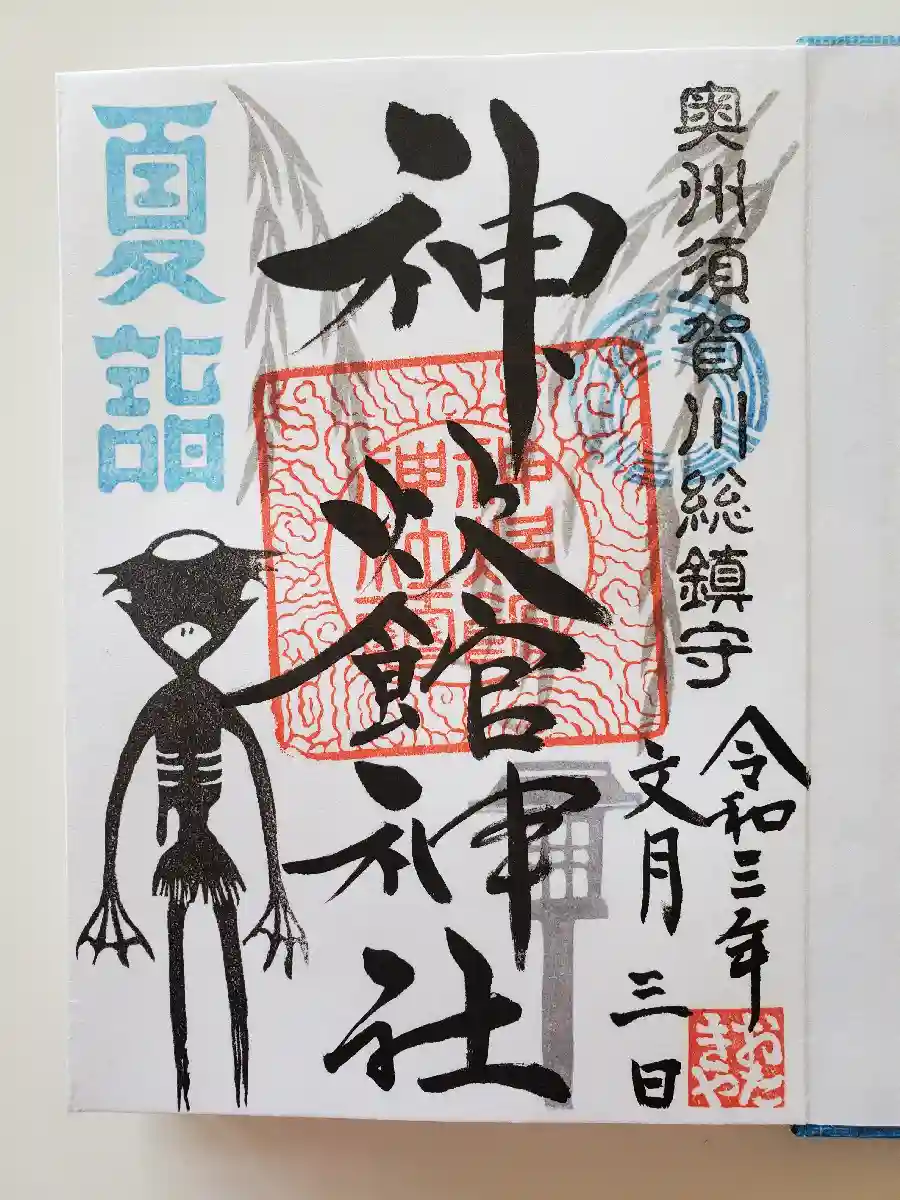 奥州須賀川総鎮守
令和三年
文月三日
おた
きや
神炊館神社
夏詣